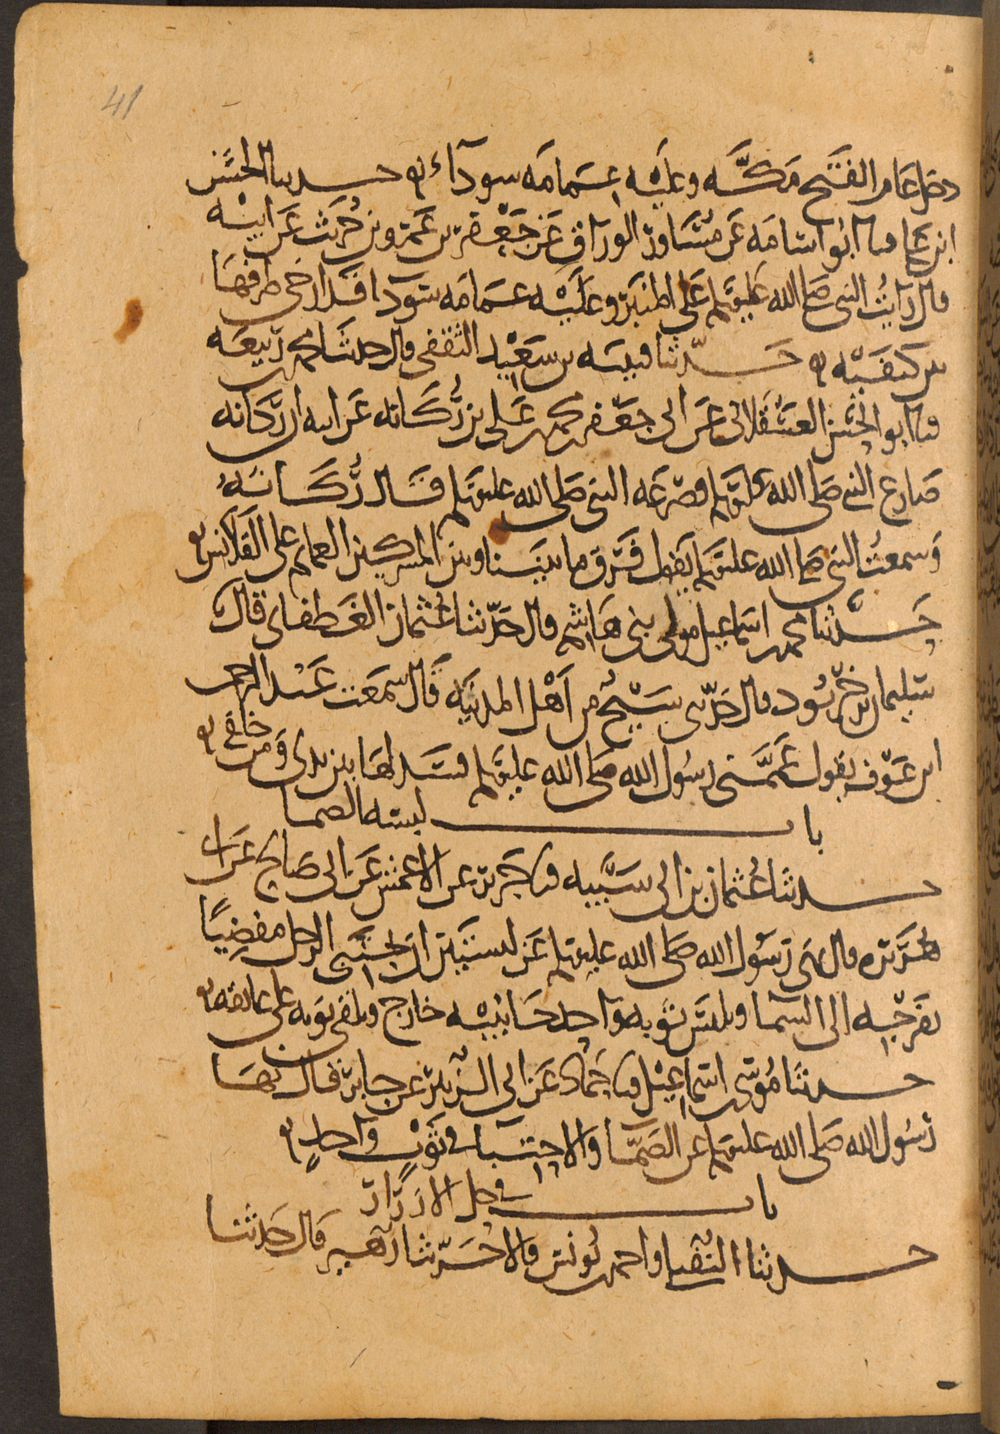 41
دخل عام الفتح مكَّه وعليْه عِمامَه سودآء ٥ حدثنا الحسَن
ابن علي نا ابو اسامَه عَن مُسَاور الوراق عَن جَعْفر بن عَمرو بن حُرَيث عَن ابيْه
قال رايْتُ النبي صلى الله عليه وسلم عَلى المنبَر وعَلَيْه عمَامَه سَودا قَد ارخى طرفهَا
بين كتفَيْه ٥ حَدّثنا قتيبَه بن سَعِيْد الثقفي قال حدثنَا محمد بن ربيْعَه
نا ابو الحسَن العَسْقَلاني عَن ابي جعْفر بن محمد بن عَلي بن رُكَانَه عَن ابيه ان ركَانه
صَارع النبي صَلى الله عليه وسلم فصَرعَه النبي صَلى الله عليه وسلم قَال رُكَانَهُ
وَسمعتُ النبي صلى الله عليه وسلم يَقول فَرْق ما بيْنَنا وبين المشركين العمايم على القَلانس ٥
حَدّثنا محمد بن اسماعيل مولى بني هَاشم قال حَدّثنا عُثمان الغَطفاني قال
سُليمان بن خَرّبُود قال حَدّثني شيْخٌ من اَهْل المدينَه قَال سَمعَت عَبْد الرحمن
ابن عَوْف يقول عَمَّمَني رسُول الله صَلى الله عليه وسلم فسَدلهَا بين يدي وَمن خلفي ٥
باب لبسَه الصمّا
حدثنَا عُثمان بن ابي شَيْبه نا جَرير عن الاعمش عَن ابي صَالح عَن ابي
هُرَيْره قال نهى رَسُول الله صَلى الله عليه وسلم عَن لبستَيْن ان يحتَبي الرجل مفضِيًا
بفَرجِه الى السمَا ويلبس ثوبه وَاحِد جَانبَيْه خارج ويلقي ثَوبَه على عاتقه ٥
حدثنَا مُوسَى بن اسمَاعِيْل نا حمّاد عَن ابي الزبَيْر عَن جابر قال نهَا
رسُول الله صَلى الله عليه وسلم عن الصَمّا وَالاحِتبَا في ثَوْبٍ وَاحدٍ ٥
باب في حل الازرَار
حدثنا النُفيلي واحمد بن يُونس قالا حَدّثنا زهَير قَال حَدثنا